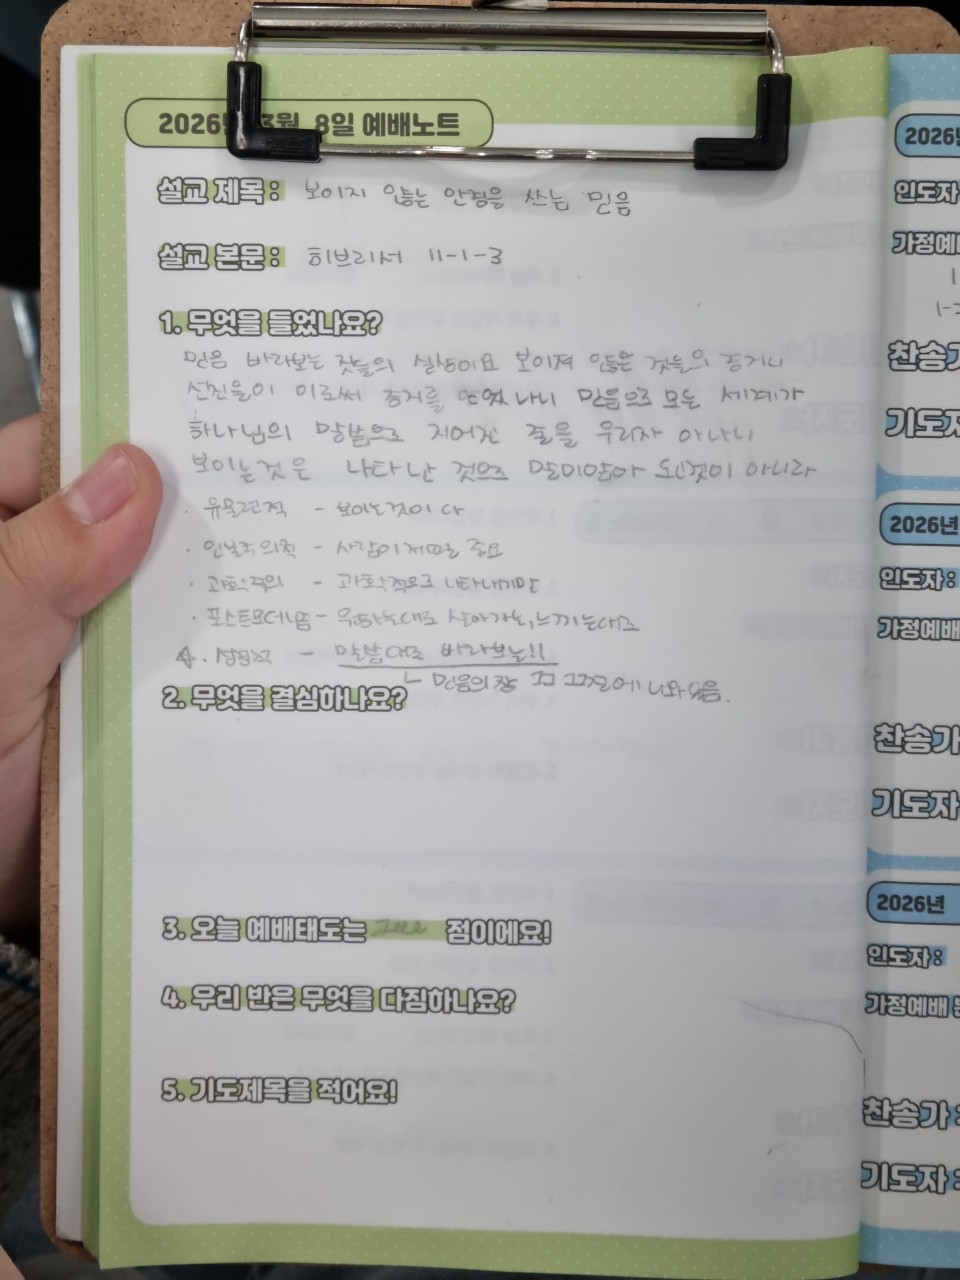 2026년 3월 8일 예배노트
설교 제목 : 보이지 않는 안경을 쓰는 믿음
설교 본문 : 히브리서 11-1-3
1. 무엇을 들었나요?
믿음 바라보는 것들의 실상이요 보이져 않는 것들의 증거니
선진들이 이로써 증거를 얻었나니 믿음으로 모든 세계가
하나님의 말씀으로 지어진 줄을 우리자 아나니
보이는것은 나타난 것으로 말미암아 된것이 아니라
· 유물론적 - 보이는것이다
· 인본주의적 - 사람이 중요
· 과학주의 - 과학적으로
· 포스트모더니즘 - 원하는대로 살아가는, 느끼는대로
· 성경적 - 말씀대로 바라보는!!
ㄴ 믿음의장 에 나와있음.
2. 무엇을 결심하나요?
3. 오늘 예배태도는 점이에요!
4. 우리 반은 무엇을 다짐하나요?
5. 기도제목을 적어요!
2026
인도자
가정예배
찬송가
기도자
2026년
인도자 :
가정예배
찬송가
기도자
2026년
인도자 :
가정예배
찬송가 :
기도자 :